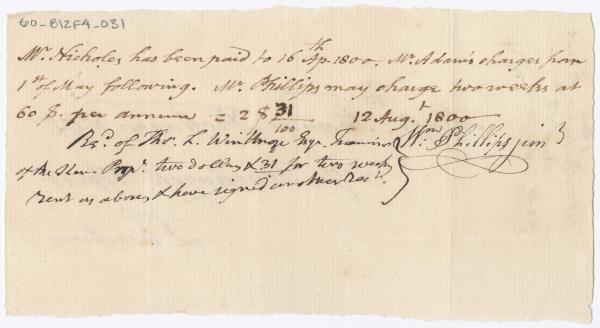 60-812F4-031
Mr. Nicholes has been paid to 16th Ap. 1800. Mr. Adam's charges from
1st of May following. Mr. Phillips may charge two weeks at
60 $. per annum = 2 $ 31/100 12 Augt. 1800
Recd. of Tho. L. Winthrop Esqr.
Wm. Phillips junr
of the Propr. two dollars & 31 for two weeks
rent as above, & have signed another Rect.